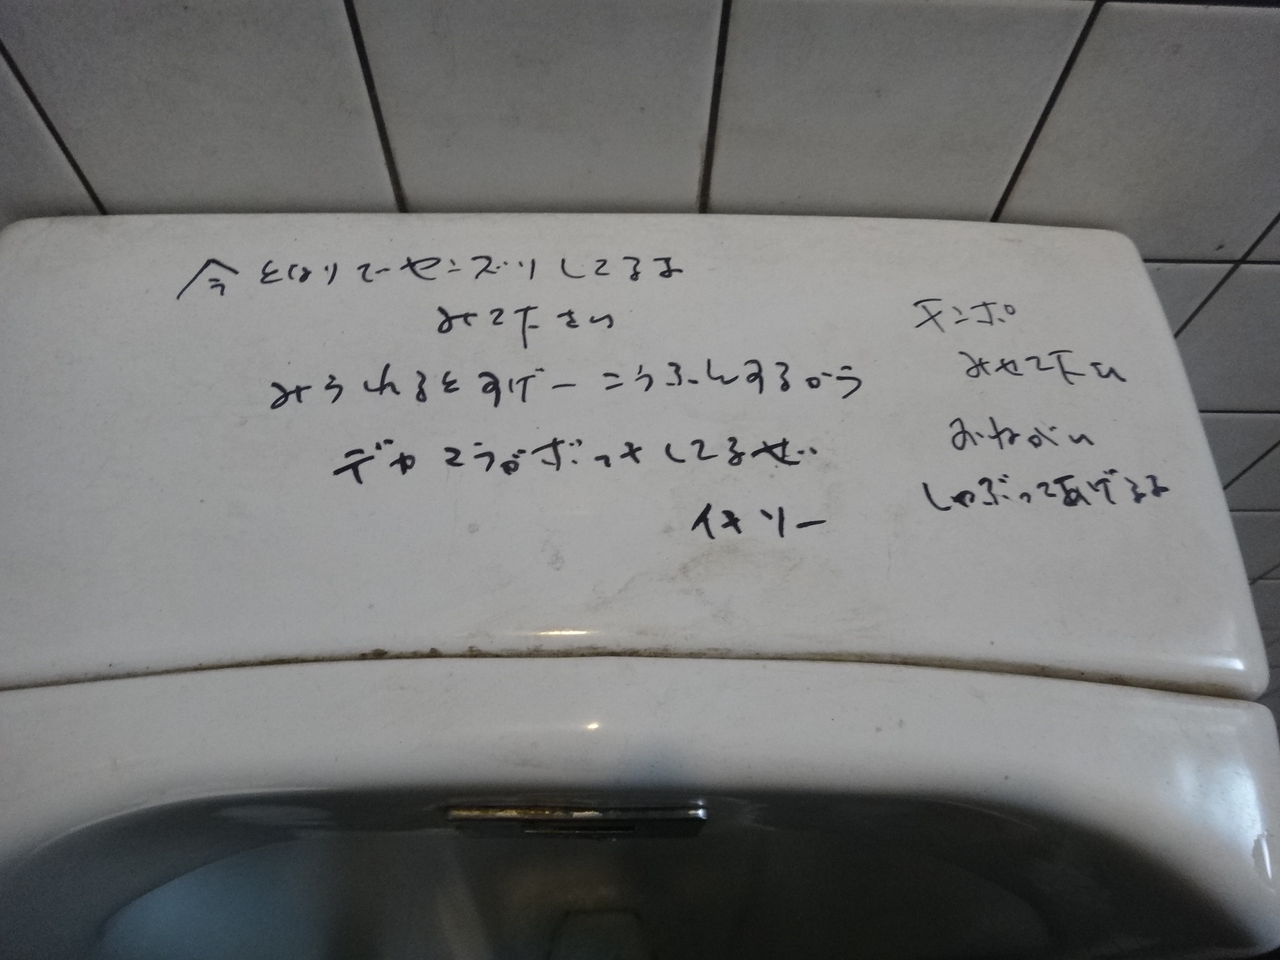 今となりでセンズリしてるよ
みて下さい
みられるとすげーこうふんするから
デカマラがボッキしてるぜ
イキソー
チンポ
みせて下さい
おねがい
しゃぶってあげるよ